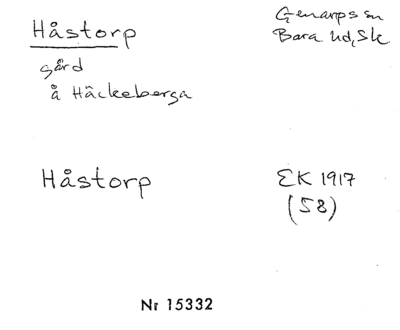 Håstorp
Genarps sn
Bara hd, Sk
gård
å Häckeberga
Håstorp
EK 1917
(58)
Nr 15332